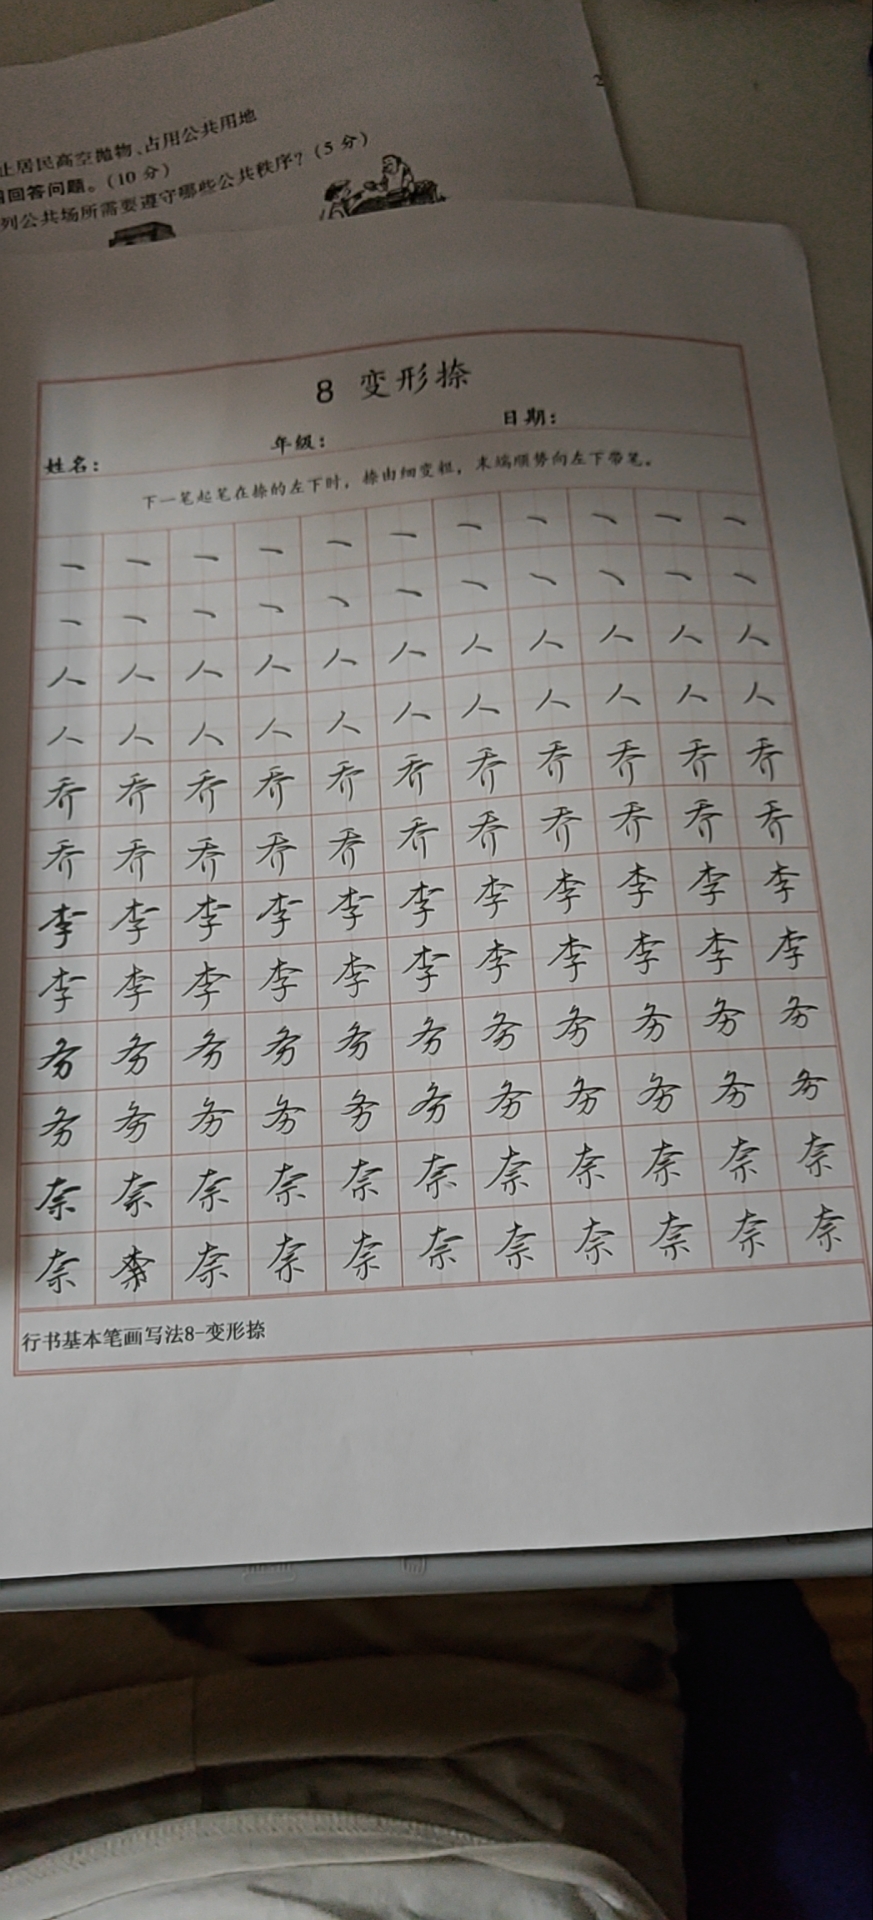 2
止居民高空抛物、占用公共用地
回答问题。(10 分)
列公共场所需要遵守哪些公共秩序?(5 分)
8 变形捺
姓名: 年级: 日期:
下一笔起笔在捺的左下时,捺由细变粗,末端顺势向左下带笔。
人 人 人 人 人 人 人 人 人 人 人
人 人 人 人 人 人 人 人 人 人 人
乔 乔 乔 乔 乔 乔 乔 乔 乔 乔 乔
乔 乔 乔 乔 乔 乔 乔 乔 乔 乔 乔
李 李 李 李 李 李 李 李 李 李 李
李 李 李 李 李 李 李 李 李 李 李
务 务 务 务 务 务 务 务 务 务 务
务 务 务 务 务 务 务 务 务 务 务
奈 奈 奈 奈 奈 奈 奈 奈 奈 奈 奈
奈 奈 奈 奈 奈 奈 奈 奈 奈 奈
行书基本笔画写法8-变形捺